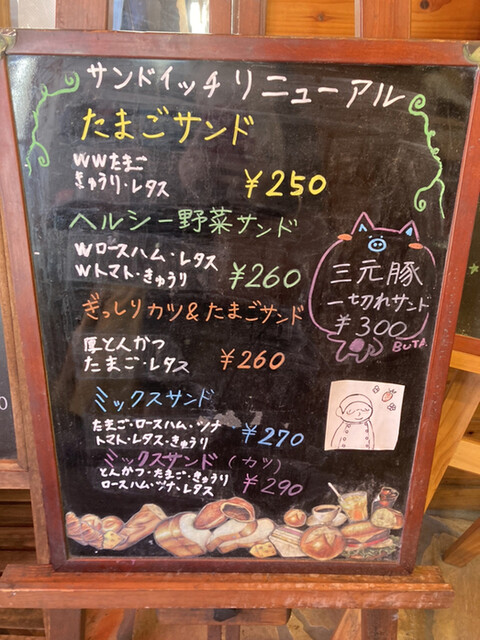 サンドイッチリニューアル
たまごサンド
WWたまご
きゅうり・レタス ¥250
ヘルシー野菜サンド
Wロースハム・レタス
Wトマト・きゅうり ¥260
ぎっしりカツ&たまごサンド
厚とんかつ
たまご・レタス ¥260
ミックスサンド
たまご・ロースハム・ツナ
トマト・レタス・きゅうり ¥270
ミックスサンド(カツ)
とんかつ・たまご・きゅうり
ロースハム・ツナ・レタス ¥290
三元豚
一切れサンド
¥300
BUTA.